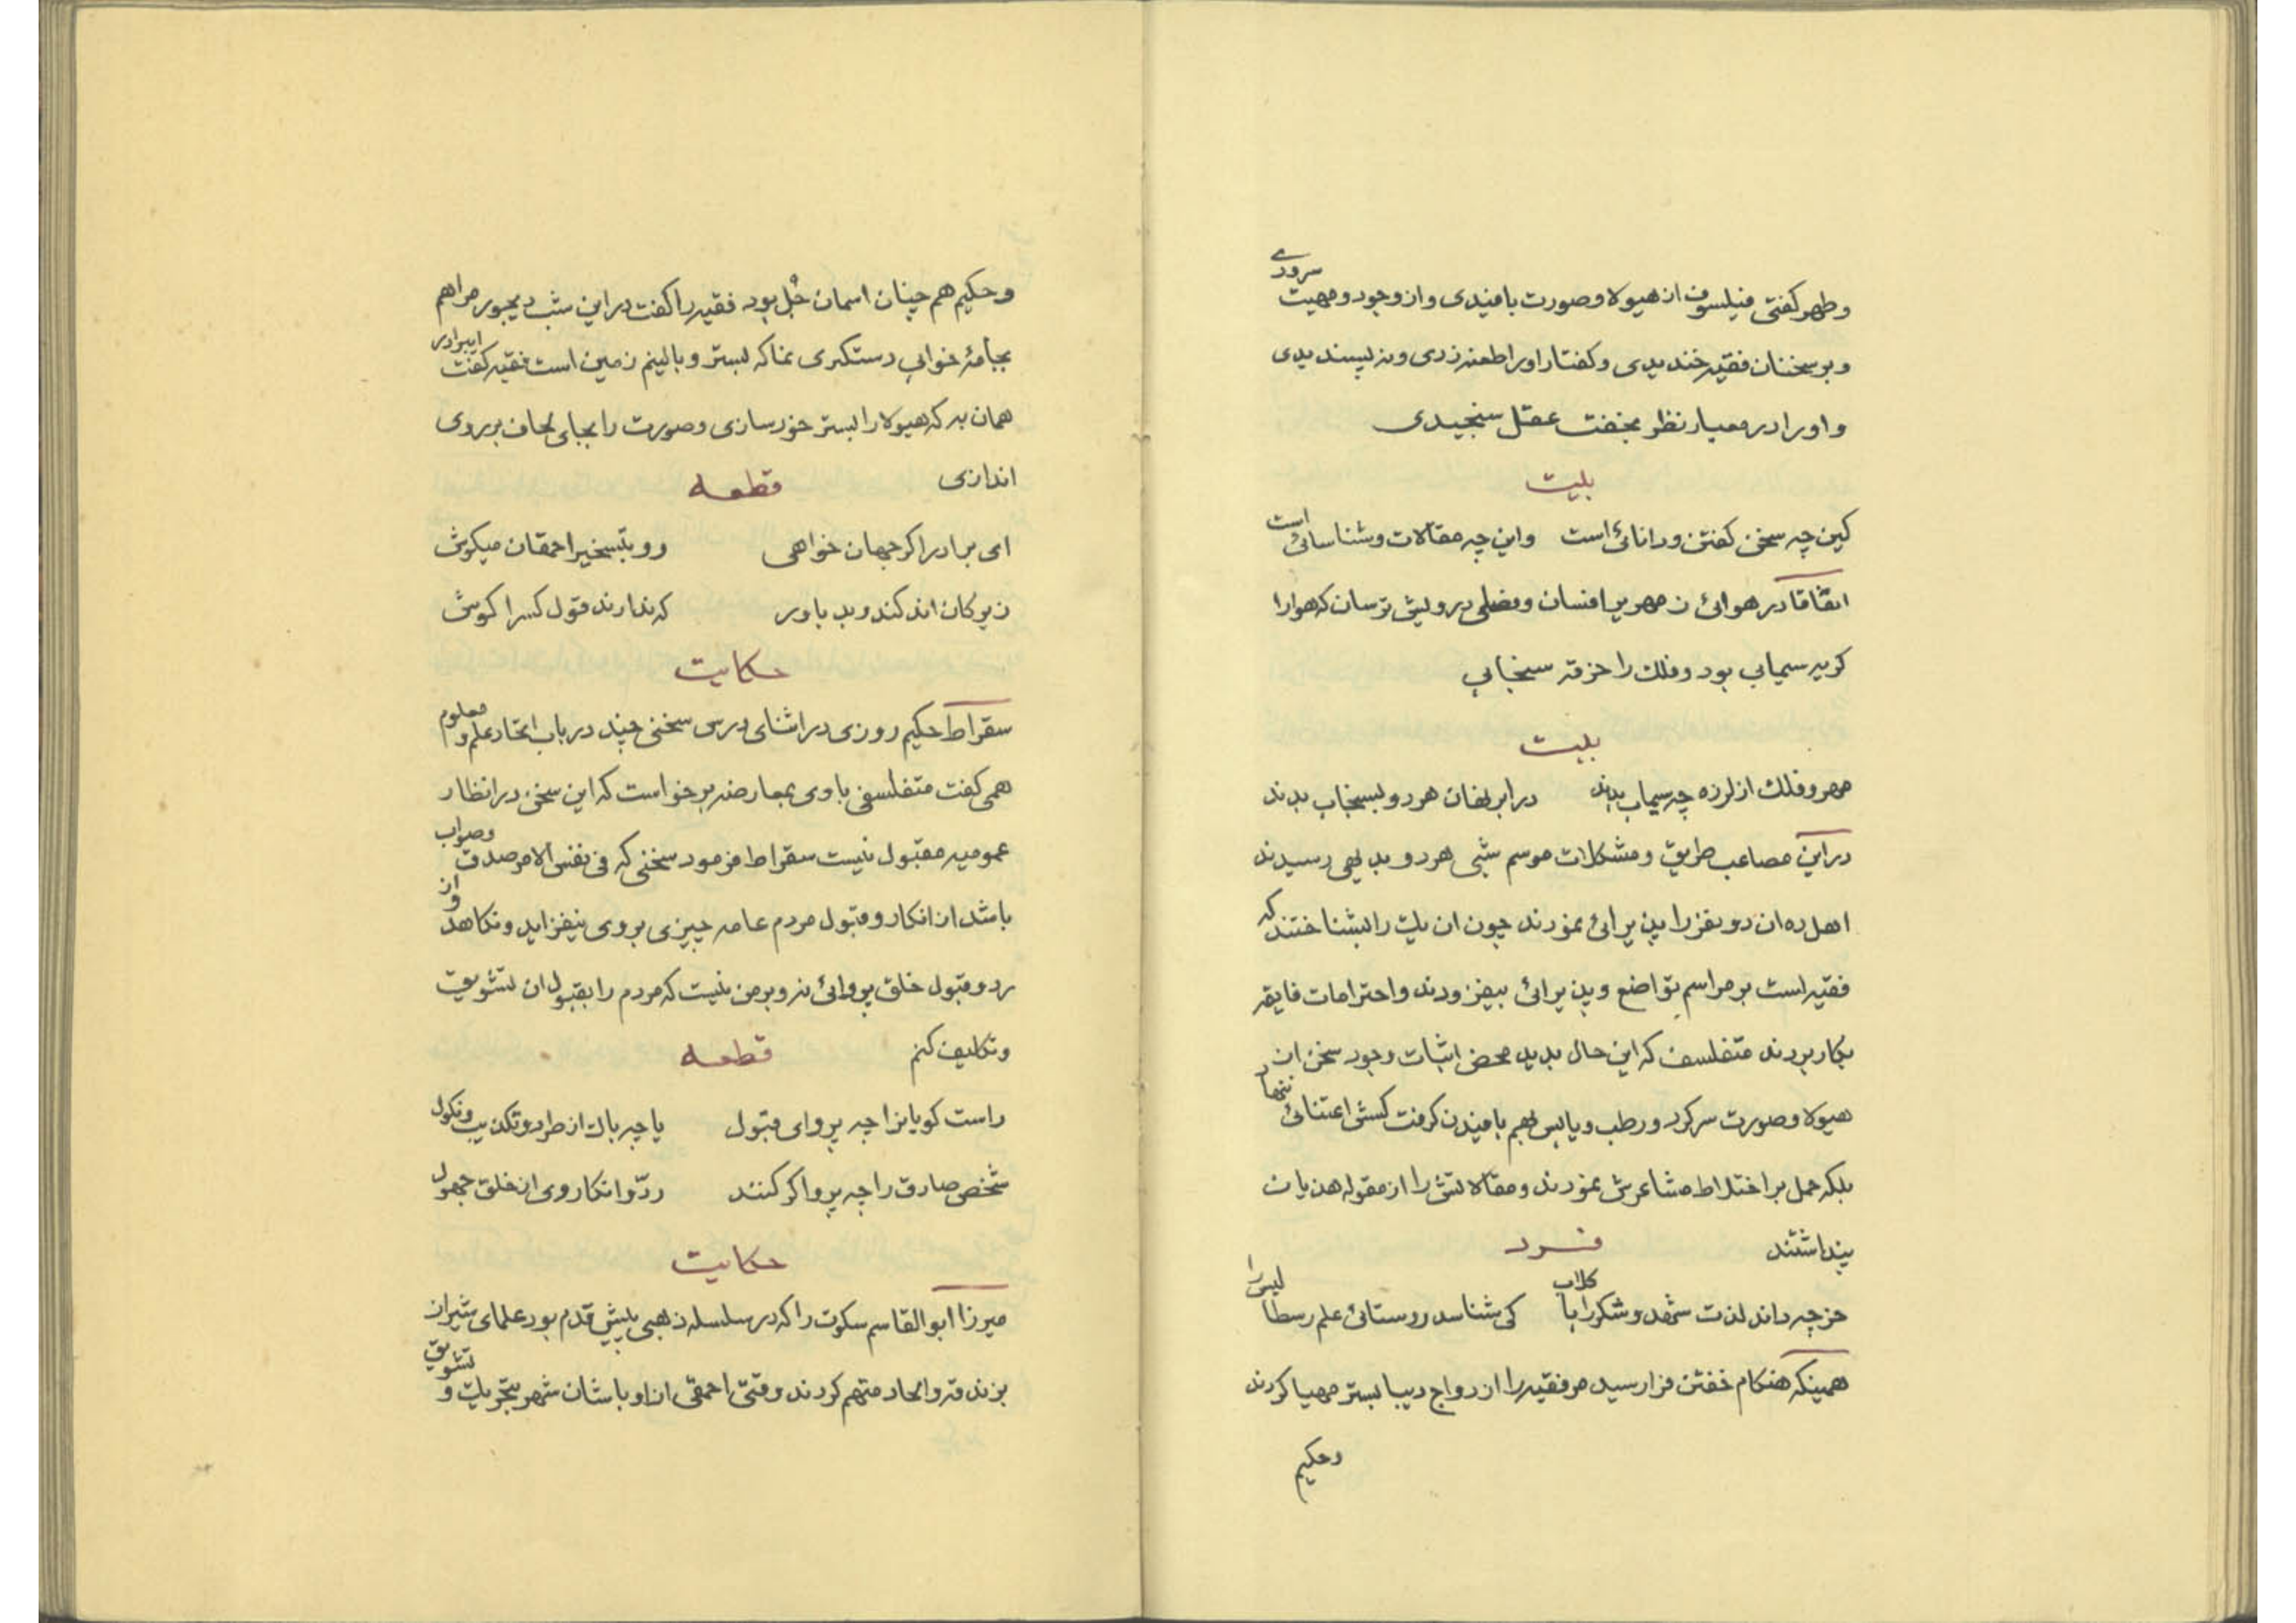 وطهر گفتی فیلسوف از هیولا و صورت بافیدی و از وجود و مهیت سرودی
و بر سخنان فقیه خندیدی و گفتار او را طعنه زدی و نه پسندیدی
و او را در معیار نظر بخفت عقل سنجیدی
بیت
کین چه سخن گفتن و دانائی است واین چه مقالات و شناسائی است
اتفاقا در هوائی زمهریر افسان و فصلی درویش ترسان که هوا را
کریه سیمابی بود و فلک را خرقه سنجابی
بیت
مهر و فلک از لرزه چه سیماب بدند در ابر نهان هر دو بسنجاب بدند
در این مصاعب طریق و مشکلات موسم شبی هر دو بدیهی رسیدند
اهل ده ان دو نفر را پذیرائی نمودند چون ان یک را بشناختند که
فقیه است بر مراسم تواضع و پذیرائی بیفزودند و احترامات فایقه
بکار بردند متفلسف که این حال بدید محض اثبات وجود سخن از
هیولا و صورت سر کرد و رطب و یابس بهم بافیدن گرفت کسش اعتنائی ننهاد
بلکه حمل بر اختلاط مشاعرش نمودند و مقالاتش را از مقوله هذیان
پنداشتند فرد
خر چه داند لذت شهد و شکر را با کلاب کی شناسد روستائی علم رسطالیس را
همینکه هنکام خفتن فرا رسید مر فقیه را از دواج دیبا بستر مهیا کردند
و حکیم
و حکیم هم چنان اسمان جُل بود فقیه را گفت در این شب دیجور مرا هم
بجامهٔ خوابی دستگیری نما که بستر و بالینم زمین است فقیه گفت ایبرادر
همان به که هیولا را بستر خود سازی و صورت را بجای لحاف بر روی
اندازی قطعه
ای برادر اگر جهان خواهی رو بتسخیر احمقان میکوش
زیرکان اند کند و بد باور که ندارند قول کس را گوش
حکایت
سقراط حکیم روزی در اثنای درس سخنی چند در باب اتحاد علم و معلوم
همی گفت متفلسفی با وی بمعارضه برخواست که این سخن در انظار
عمومیه مقبول نیست سقراط فرمود سخنی که فی نفس الامر صدق وصواب
باشد از انکار و قبول مردم عامه چیزی بر وی نیفزاید و نکاهد و از
رد و قبول خلق پروائی نه و بر من نیست که مردم را بقبول ان تشویق
و تکلیف کنم قطعه
راست گویانرا چه پروای قبول یا چه باک از طرد و تکذیب و نکول
شخص صادق را چه پروا گر کنند ردّ و انکار وی از خلق جهول
حکایت
میرزا ابوالقاسم سکوت را که در سلسله ذهبی پیش قدم بود علمای شیراز
بزندقه و الحاد متهم کردند وقتی احمقی از اوباشان شهر بتحریک و تشویق